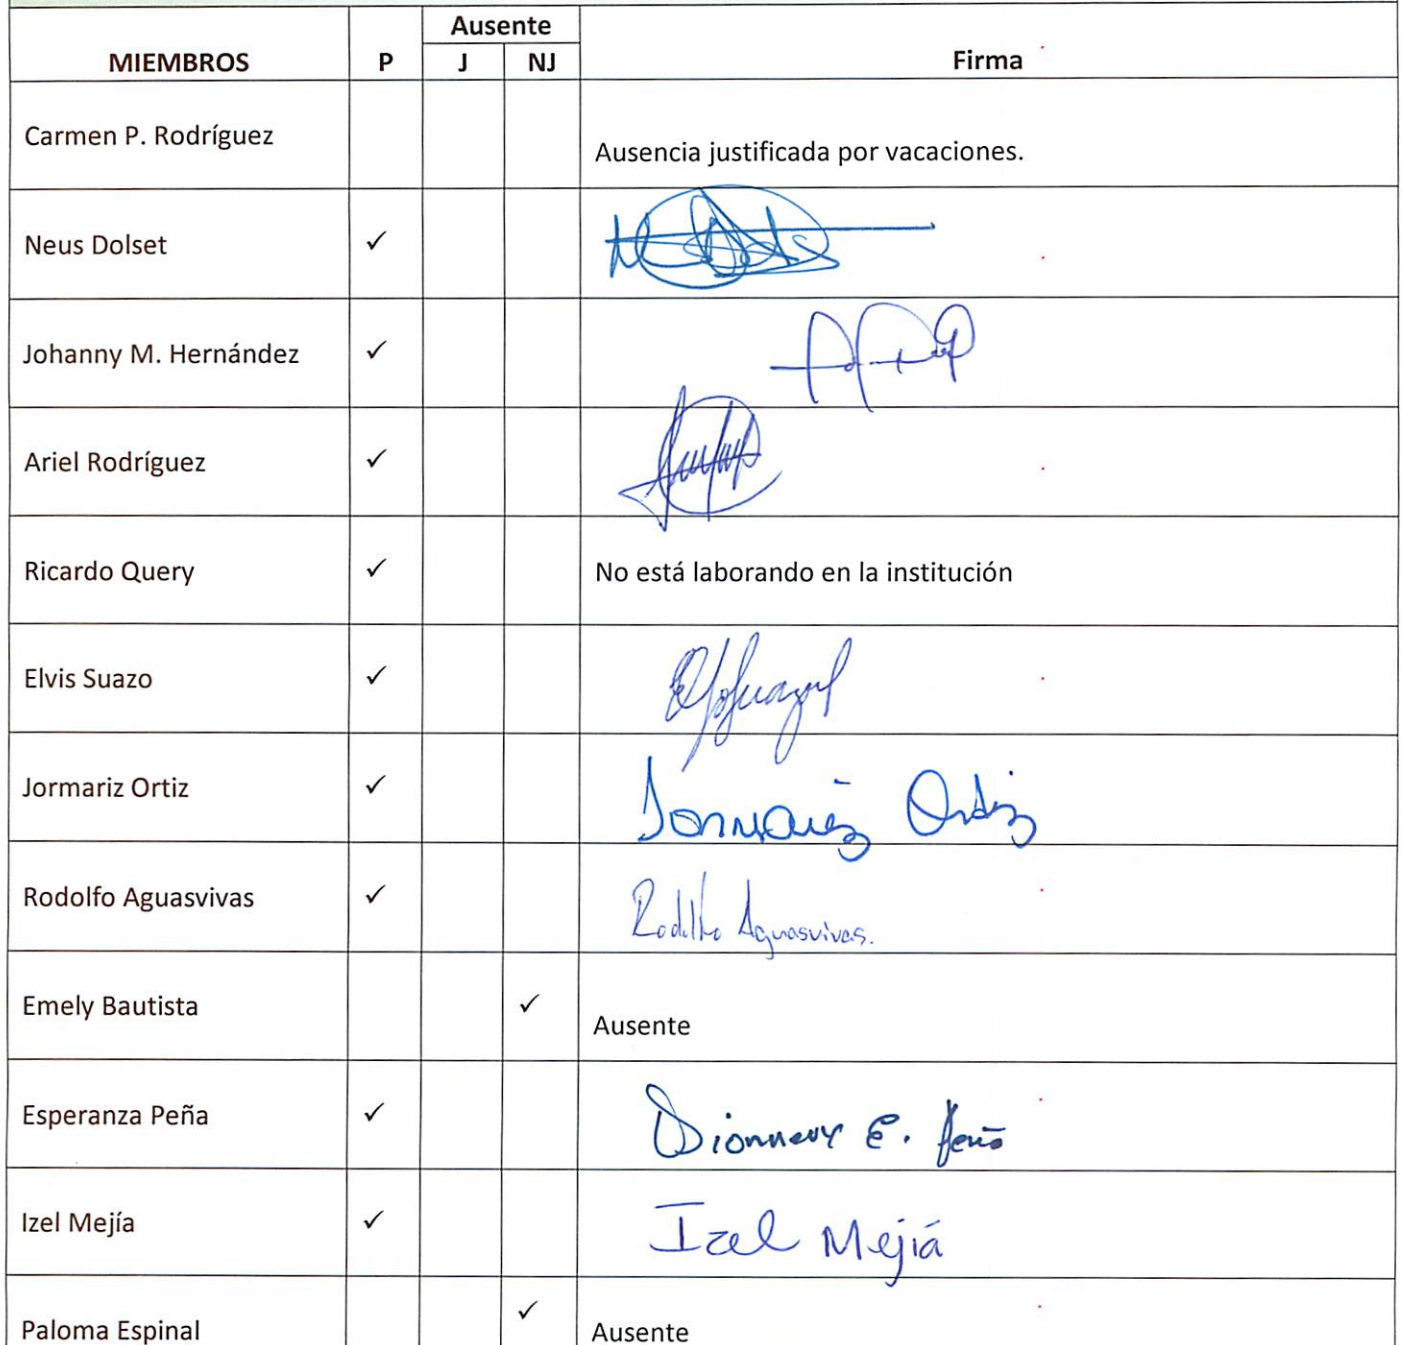 Ausente
MIEMBROS P J NJ Firma
Carmen P. Rodríguez
Ausencia justificada por vacaciones.
Neus Dolset ✓
Johanny M. Hernández ✓
Ariel Rodríguez ✓
Ricardo Query ✓ No está laborando en la institución
Elvis Suazo ✓
Jormariz Ortiz ✓ Jormariz Ortiz
Rodolfo Aguasvivas ✓ Rodolfo Aguasvivas.
Emely Bautista ✓
Ausente
Esperanza Peña ✓ Dionnevy E. Peña
Izel Mejía ✓ Izel Mejiá
Paloma Espinal ✓ Ausente